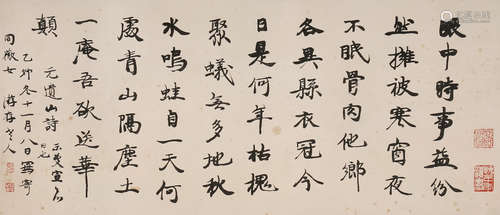 眼中時事益紛
然擁被寒窗夜
不眠骨肉他鄉
各異縣衣冠今
日是何年枯槐
聚蟻無多地秋
水鳴蛙自一天何
處青山隔塵土
一庵吾欲送華
顛 元遺山詩
乙卯冬十一月八日寫寄
同薇女 游存老人